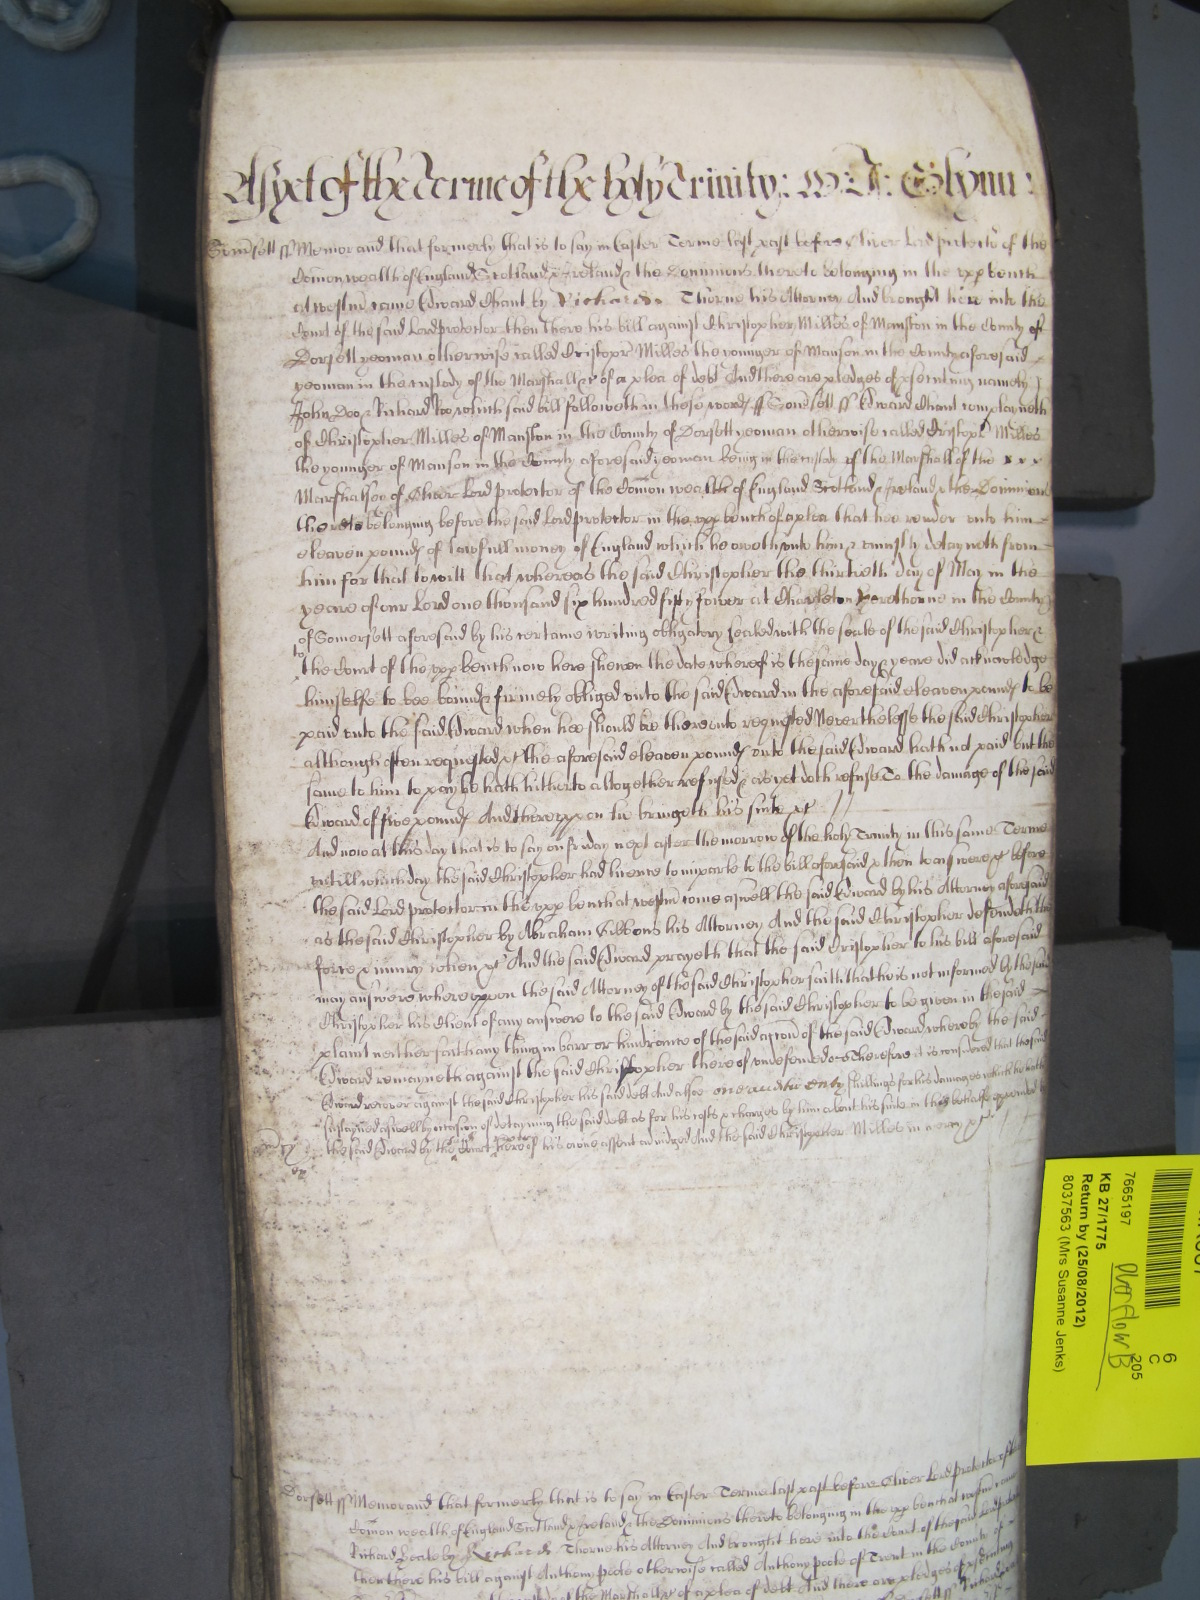 As yet of the Terme of the holy Trinity: W: J: Glynn:
Somsett ss Memorand that formerly that is to say in Easter Terme last past before Oliver Lord protector of the
Comon wealth of England Scotland & Ireland & the Dominions thereto belonging in the upp bench
at Westmr came Edward Chant by Richard Thorne his Attorney And brought here into the
Court of the said Lord protector then there his bill against Christopher Milles of Manston in the County of
Dorsett yeoman otherwise called Cristopr Milles the younger of Manson in the County aforesaid
yeoman in the custody of the Marshall &c of a plea of debt And there are pledges of psecuting namely
John Doo & Richard Roo which said bill followeth in these words ss Somsett ss Edward Chant complayneth
of Christopher Milles of Manston in the County of Dorsett yeoman otherwise called Cristopr Milles
the younger of Manson in the County aforesaid yeoman being in the custody of the Marshall of the
Marshalsey of Oliver Lord protector of the Comon wealth of England Scotland & Ireland & the Dominions
thereto belonging before the said Lord protector in the upp bench of a plea that hee render unto him
eleaven pounds of lawfull money of England which he oweth unto him & uniustly detayneth from
him for that to witt that whereas the said Christopher the thirtieth day of May in the
yeare of our Lord one thousand six hundred fifty fower at Charleton Horethorne in the County
of Somersett aforesaid by his certaine writing obligatory sealed with the seale of the said Christopher &
to the Court of the upp bench now here shewen the date whereof is the same day & yeare did acknowledge
himselfe to bee bound & firmely obliged unto the said Edward in the aforesaid eleaven pounds to be
paid unto the said Edward when hee should be thereunto requested Neverthelesse the said Christopher
although often requested &c the aforesaid eleaven pounds unto the said Edward hath not paid but the
same to him to pay he hath hitherto altogether refused & as yet doth refuse To the damage of the said
Edward of five pounds And thereuppon he bringeth his suite &c
And now at this day that is to say on friday next after the morrow of the holy Trinity in this same Terme
untill which day the said Christopher had licence to imparle to the bill aforesaid & then to answere &c before
the said Lord protector in the upp bench at Westmr come aswell the said Edward by his Attorney aforesaid
as the said Christopher by Abraham Gibbons his Attorney And the said Christopher defendeth the
force & iniury when &c And the said Edward prayeth that the said Cristopher to his bill aforesaid
may answere whereuppon the said Attorney of the said Christopher saith that he is not informed by the said
Christopher his Client of any answere to the said Edward by the said Christopher to be given in the said
plaint neither saith any thing in barr or hindrance of the said accon of the said Edward whereby the said
Edward remayneth against the said Christopher thereof undefended &c Therefore it is considered that the said
Edward recover against the said Christopher his said debt And alsoe one and twenty shillings for his damages which he hath
sustayned aswell by occasion of detayning the said debt as for his costs & charges by him about his suite in this behalfe appointed
the said Edward by the Court here of his owne assent adiudged And the said Christopher Milles in mercy &c
Dorsett ss Memorand that formerly that is to say in Easter Terme last past before Oliver Lord protector of the
Comon wealth of England Scotland & Ireland & the Dominions thereto belonging in the upp bench at Westmr came
Richard by Richard Thorne his Attorney And brought here into the Court of the said Lord
then there his bill against Anthony Poole otherwise called Anthony Poole of Trent in the County of
of the Marshall &c of a plea of debt And there are pledges of psecuting
Richard
7665197
KB 27/1775
Return by (25/08/2012)
8037563 (Mrs Susanne Jenks)
Overflow B
6
C
205